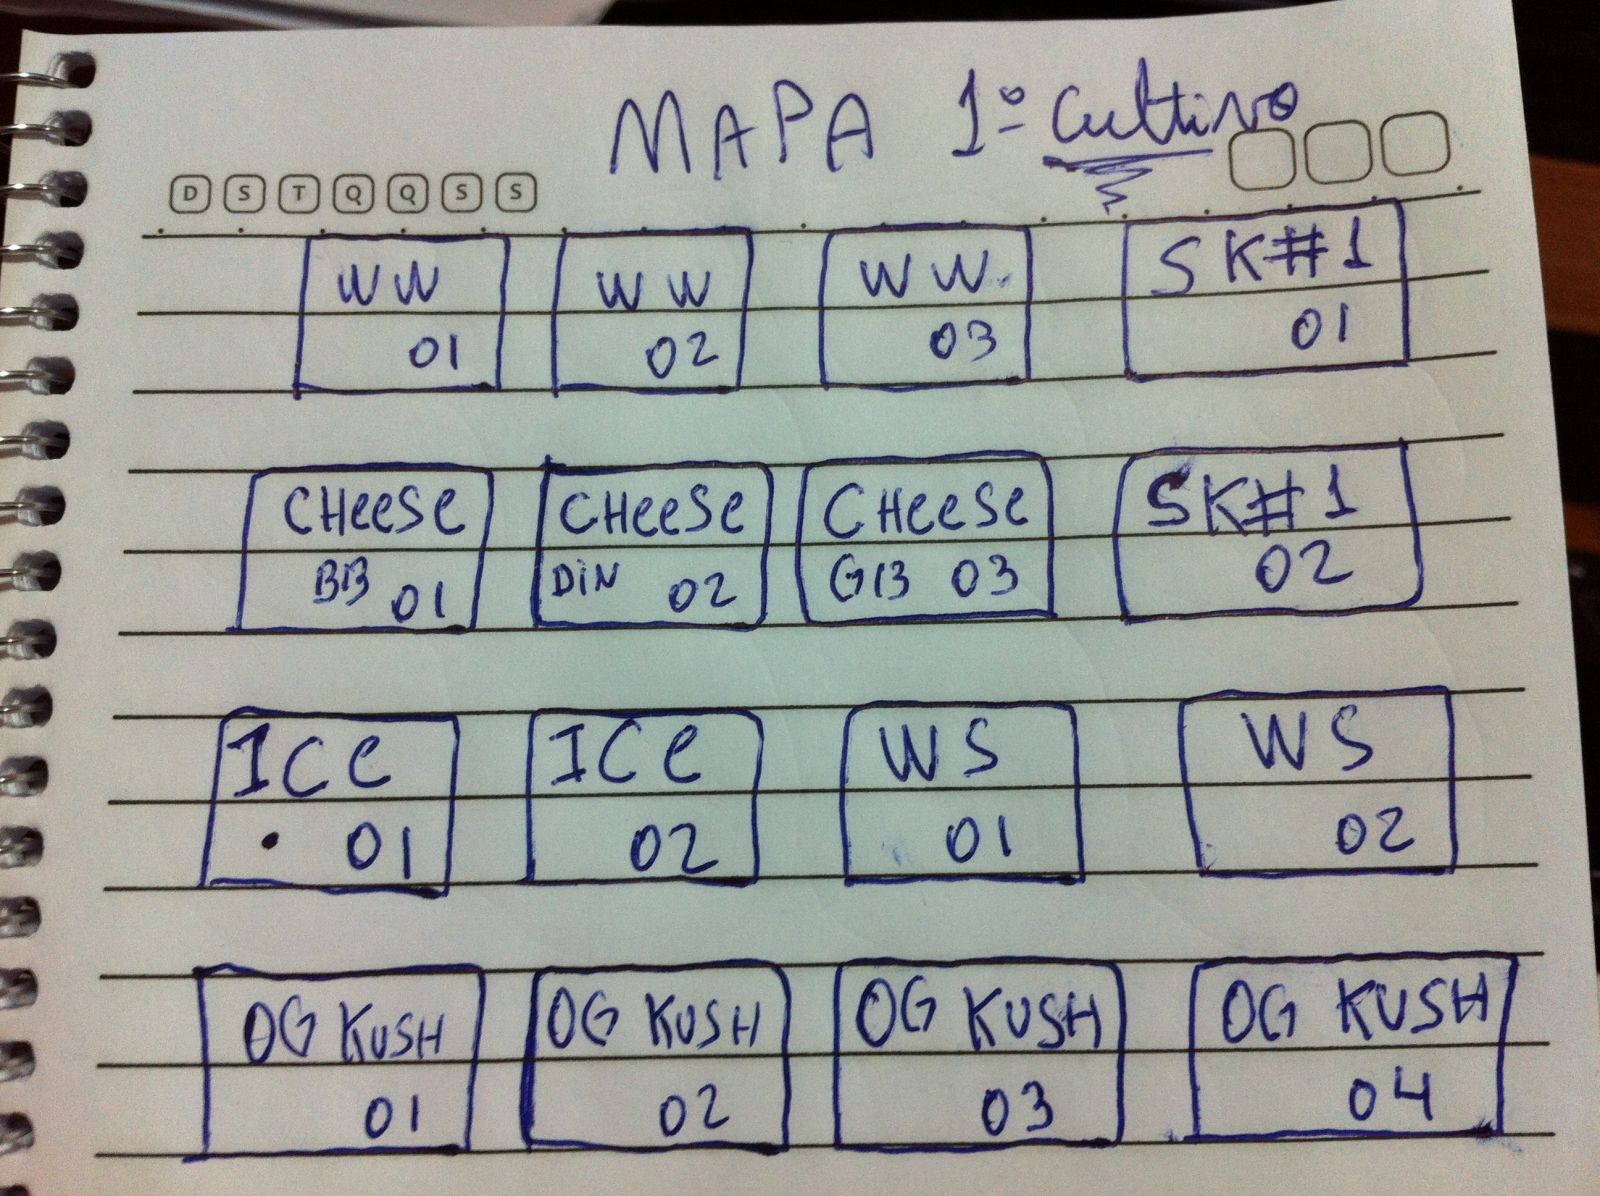 MAPA 1º Cultivo
D S T Q Q S S
WW WW WW SK#1
01 02 03 01
CHeeSe CHeeSe CHeeSe SK#1
BB 01 DIN 02 GB 03 02
ICe ICe WS WS
01 02 01 02
OG KUSH OG KUSH OG KUSH OG KUSH
01 02 03 04